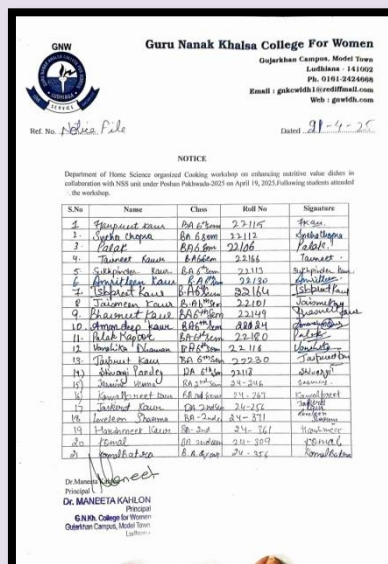 GNW
Guru Nanak Khalsa College For Women
Gujarkhan Campus, Model Town
Ludhiana - 141002
Ph. 0161-2424668
Email : gnkcwldh1@rediffmail.com
Web : gnwldh.com
SERVICE
Ref. No. Notice File
Dated 21-4-25
NOTICE
Department of Home Science organized Cooking workshop on enhancing nutritive value dishes in
collaboration with NSS unit under Poshan Pakhwada-2025 on April 19, 2025.Following students attended
the workshop.
S.No Name Class Roll No Signature
1 Harpreet Kaur BA 6th Sem 22115
2. Sneha Chopra BA 6 Sem 22112 Sneha Chopra
3. Palak BA 6 Sem 22106 Palak
4. Tavneet Kaur BA 6 Sem 22166 Tavneet
5. Sukhpinder Kaur BA 6th Sem 22113 Sukhpinder Kaur
6 Amritleen Kaur B.A 6th 22130 Amritleen
7 Ishpreet Kaur B.A 6th Sem 22164 Ishpreet Kaur
8 Jaismeen Kaur B.A 6th Sem 22101
9. Bhavneet Kaur BA 6th Sem 22149 Bhavneet Kaur
10. Amandeep Kaur BA 6th Sem 22024
11. Palak Kapoor BA 6th Sem 22180 Palak
12 Vanshika BA 6th Sem 22116 Vanshika
13. Jaspreet Kaur BA 6th Sem 22230
14) Shivangi Pandey BA 6th Sem 22118 Shivangi
15) Verma BA 2nd Sem 24-246
16) Kawalpreet Kaur BA 2nd Sem 24-267 Kawalpreet
17 Kaur BA 2nd Sem 24-256
18 Loveleen Sharma BA-2nd 24-371 Loveleen Sharma
19 Harshmeet Kaur BA-2nd 24-361
20 Komal BA 2nd Sem 24-309 Komal
21 Komal Batra B.A 24-356 Komal Batra
Dr.Maneeta Kahlon
Principal
Dr. MANEETA KAHLON
Principal
G.N.Kh. College for Women
Gujarkhan Campus, Model Town
Ludhiana